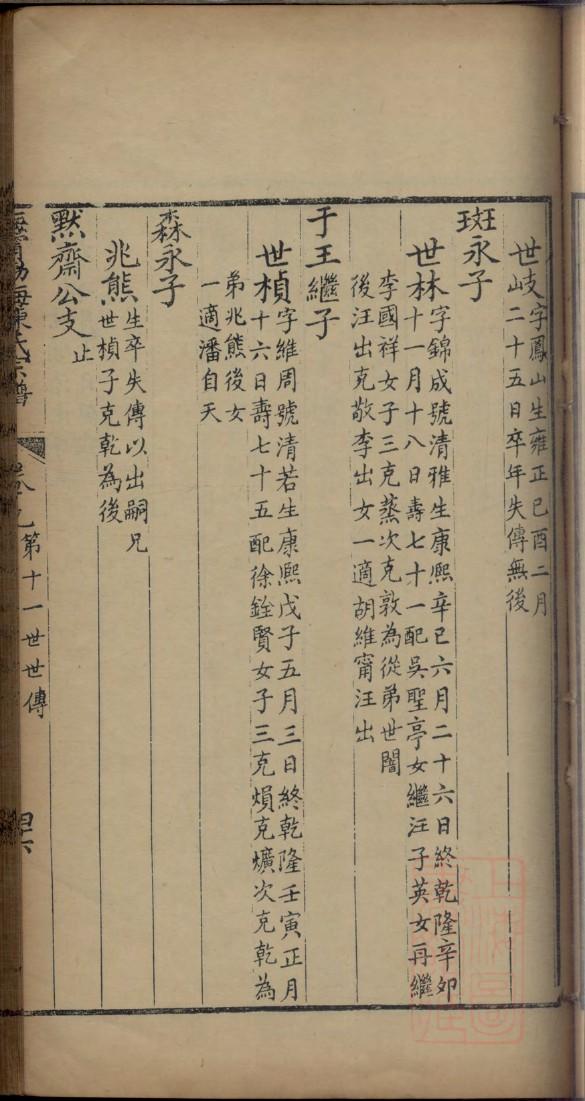 世岐字鳳山生雍正己酉二月
二十五日卒年失傳無後
斑永子
世林字錦成號清雅生康熙辛巳六月二十六日終乾隆辛卯
十一月十八日壽七十一配吳聖亭女繼汪子英女再繼
李國祥女子三克蒸次克敦為從弟世閣
後汪出克敬李出女一適胡維甯汪出
于王繼子
世楨字維周號清若生康熙戊子五月三日終乾隆壬寅正月
十六日壽七十五配徐銓賢女子三克熉克爌次克乾為
弟兆熊後女
一適潘自天
森永子
兆熊生卒失傳以出嗣兄
世楨子克乾為後
默齋公支止
海陳氏宗譜
第十一世世傳